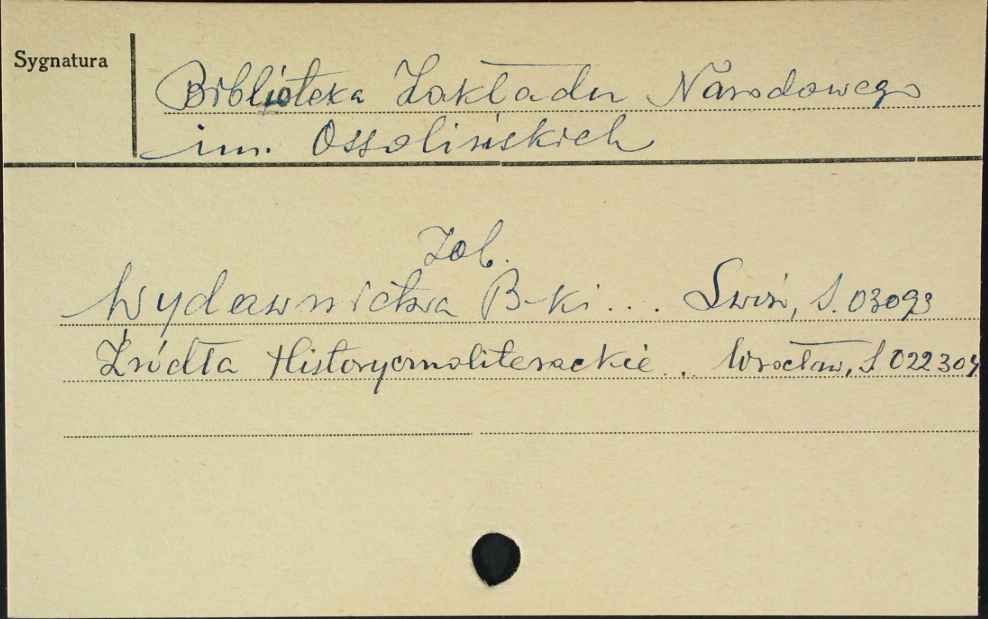 Sygnatura
Biblioteka Zakładu Narodowego
im. Ossolińskich
Zob.
Wydawnictwa B-ki... Lwów, S. 03093
Źródła Historycznoliterackie. Wrocław, S 022304